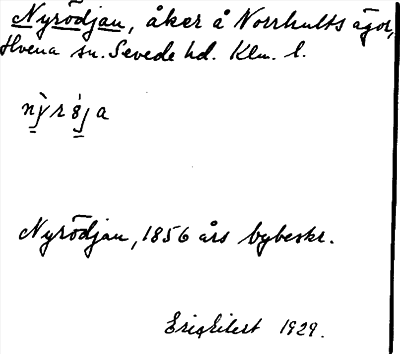 Nyrödjan, åker å Norrhults ägor,
Hvena sn. Sevede hd. Klm. l.
Nyrödjan, 1856 års bybeskr.
Eriq Eilert 1929.